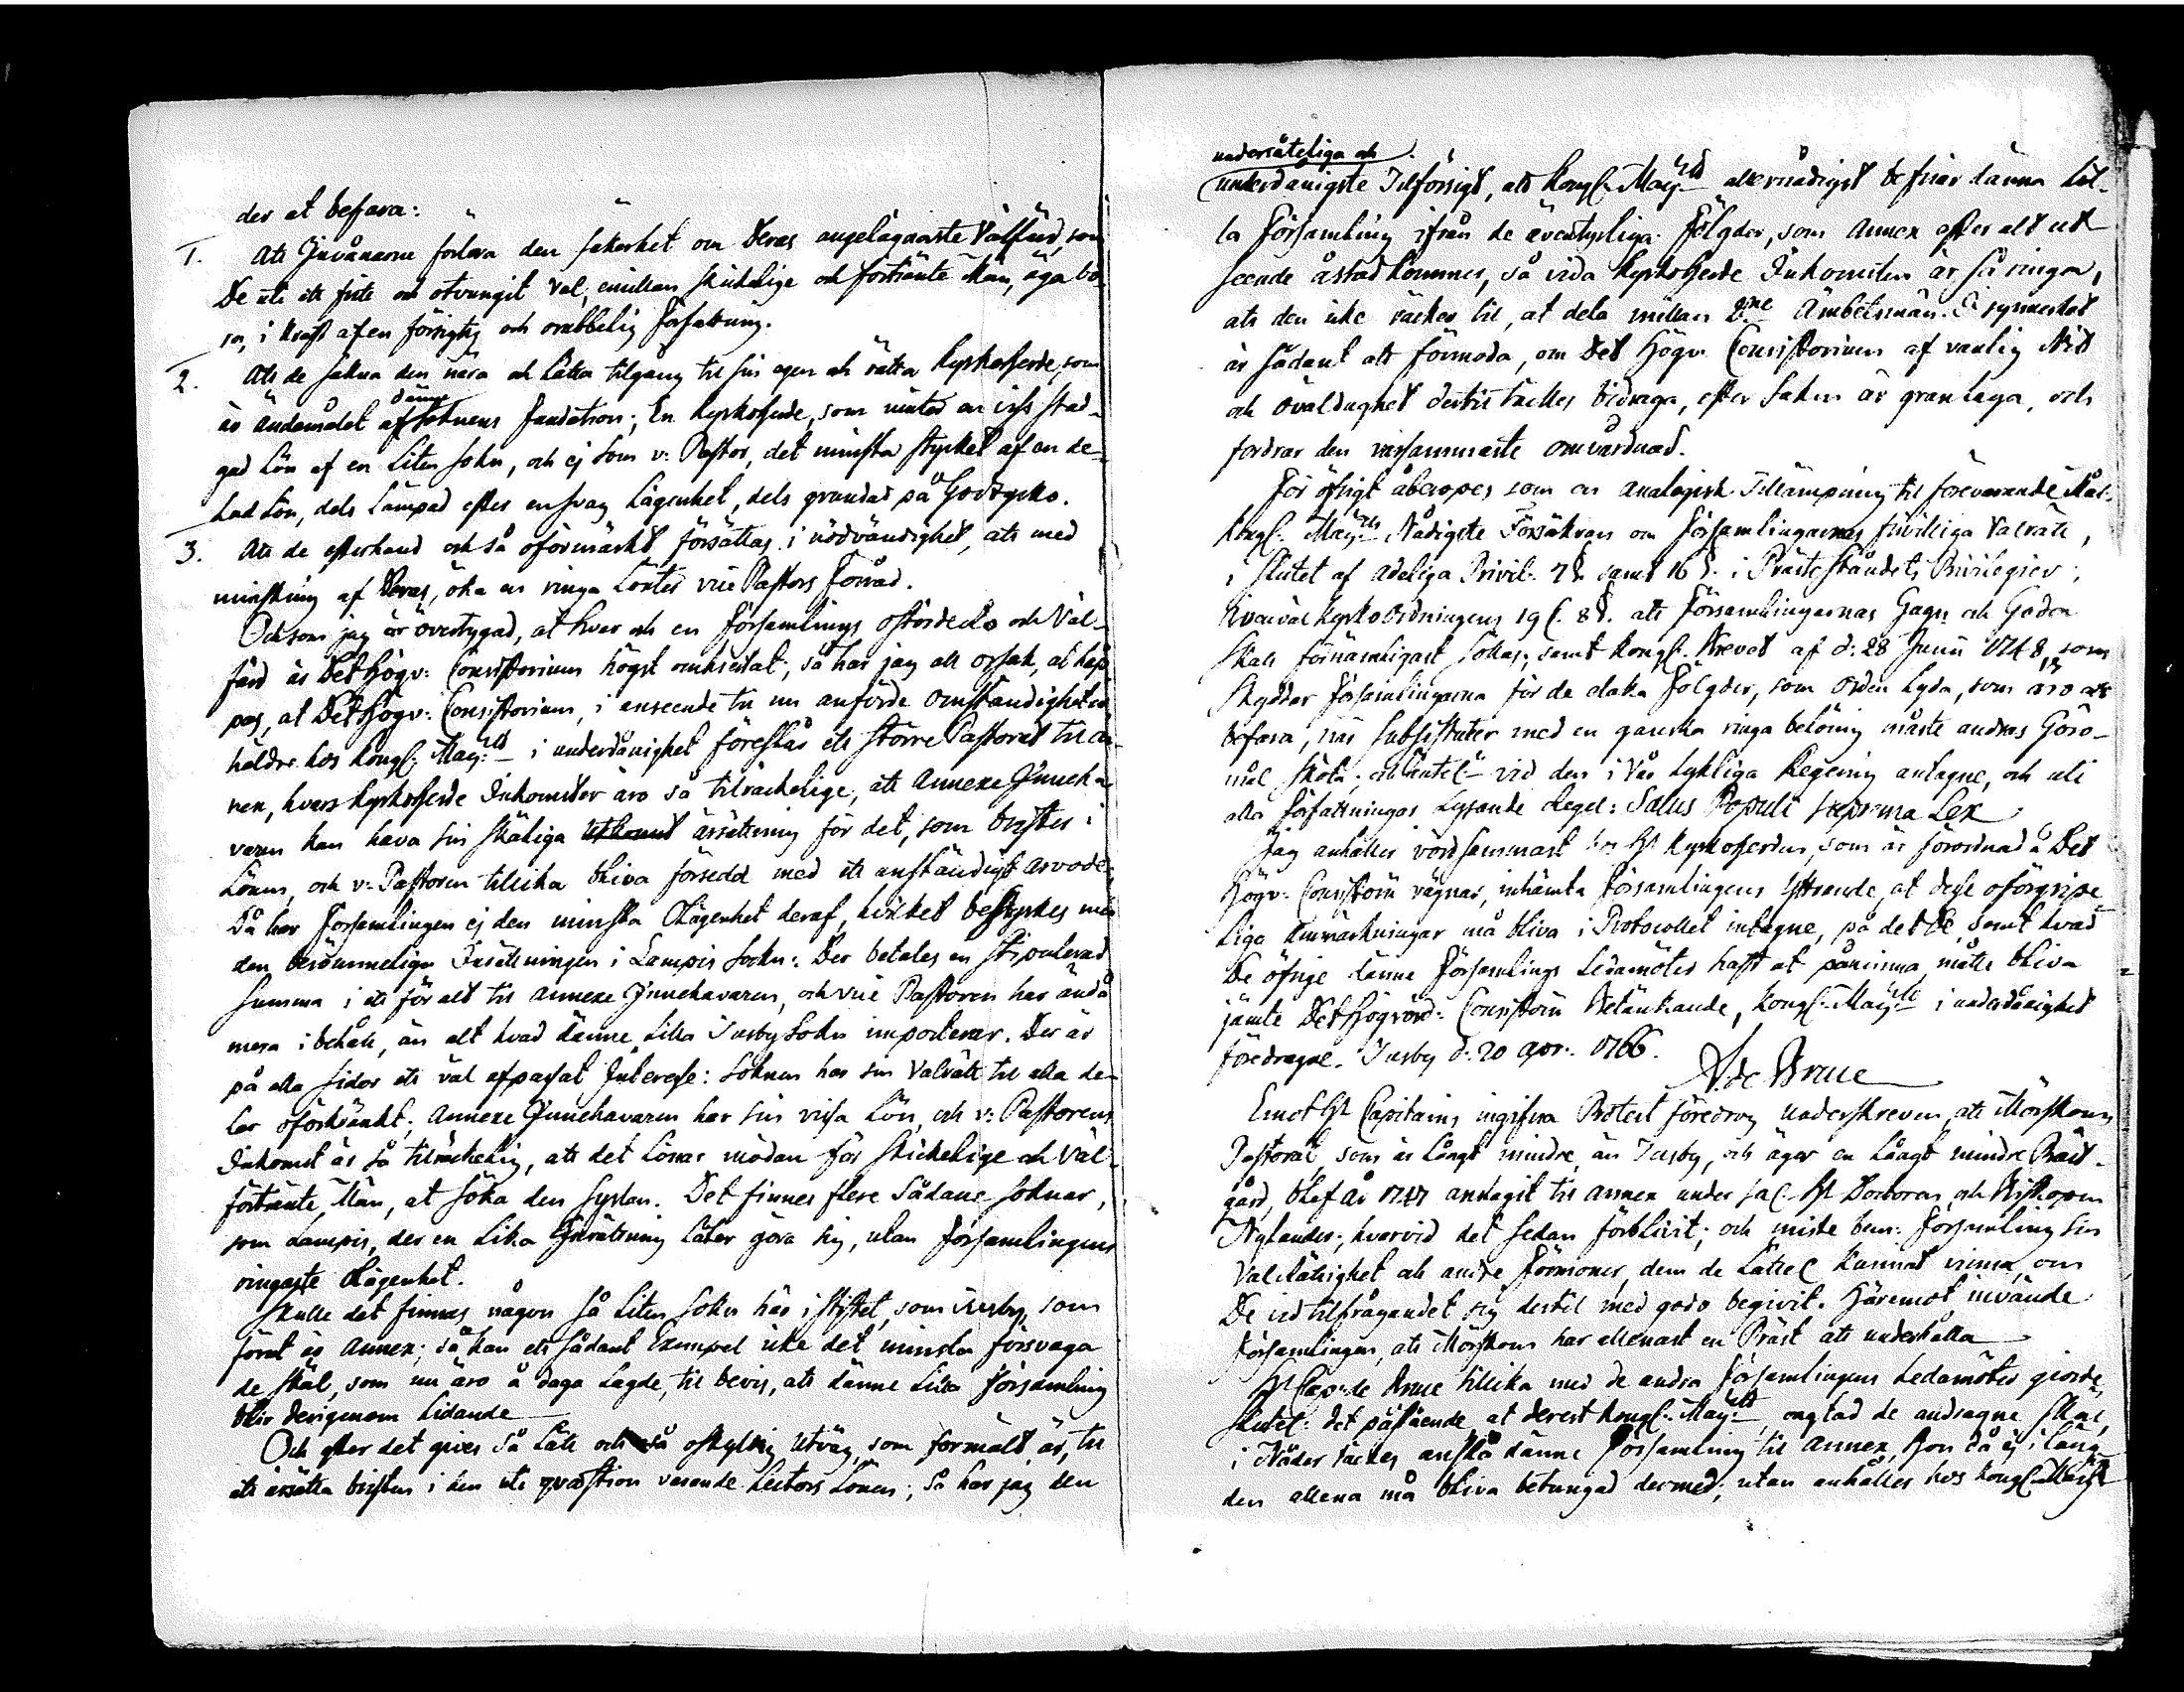 der at befara:
1. Att Jnvånarne förlora den säkerhet om Deras angelägnaste välfärd, som
De uti ett fritt och otvungit Val, emillan skickelige och förtiänte Män, äga bö-
ra, i kraft af en försigtig och orubbelig författning.
2. Att de sakna den nära och lätta tilgång til sin egen och rätta kyrkoherde, som
är ändamålet af denne Soknens fundation; En kyrkoherde, som niuter en viss stad-
gad Lön af en Liten Sokn, och ej som v: Pastor, det minsta stycket af en de-
lad Lön, dels Lämpad efter en svag Lägenhet, dels grundad på Godtycko.
3. Att de efterhand och så oförmärkt försättas i nödvändighet, att med
minskning af Deras, öka en ringa Lönter vice Pastors Förråd.
Och som jag är övertygad, at hvar och en Församlings oförderfv och Väl-
färd är Det Högv: Consistorium högst omhuldat; så har jag all orsak, at hop-
pas, at Det Högv: Consistorium, i anseende til nu anförde Omständigheter
häldre hos Kongl. Maj:tt i underdånighet föreslår ett större Pastorat til an-
nex, hvars kyrkoherde Inkomster äro så tilräckelige, att Annexe Jnneha-
varen kan hava sin skäliga ärsättning för det, som brister i
Lönen, och v: Pastoren tillika bliva försedd med ett anständigt arvode;
Då har Församlingen ej den minsta Olägenhet deraf, hvilket bestyrkes med
den berömmeliga Inrättningen i Lampis Sockn: Der betales en stipulerad
Summa i ett för alt til Annexe Jnnehavaren, och vice Pastoren har ändå
mera i behåll, än alt hvad denne Lilla Jusby Sokn importerar. Der är
på alla sidor ett väl afpassat Jnteresse: Soknen har sin Valrätt til alla de-
lar oförkränkt; Annexe Jnnehavaren har sin vissa Lön, och v: Pastorens
Inkomst är så tilräckelig, att det Lönar mödan för skickelige och väl-
förtiänte Män, at söka den syslan. Det finnes flere sådane Soknar,
som Lampis, der en Lika Jnrättning Låter göra sig, utan Församlingens
ringaste Olägenhet.
Skulle det finnas någon så Liten Sokn här i stiftet, som Jusby, som
förut är Annex; så kan ett sådant Exempel icke det minsta försvaga
de skäl, som nu äro å daga Lagde, til bevis, att denne Lilla Församling
blir derigenom Lidande
Och efter det gives så Lätt och så oskyldig Utväg, som förmält är, til
att ärsätta bristen i den uti quæstion varende Lectors Lönen; så har jag den
undersåteliga och
underdånigste Tilförsigt, att Kongl. Maj:tt allernådigst befriar denna Lil-
la Församling ifrån de äventyrliga Följder, som Annex efter alt ut
seende åstadkommer, så vida kyrkoherde Inkomsten är så ringa,
att den icke räcker til, at dela millan 2:ne Ämbetsmän. I synnerhet
är sådant att förmoda, om Det Högv: Consistorium af vanlig Nit
och oväldughet dertil täckes bidraga, efter Saken är grannlaga, och
fordrar den varsammaste omvårdnad.
För öfrigt åberopes som en analogisk Tillämpning til förevarande Mål
Kongl. Maj:tts Nådigste Försäkran om Församlingarnas frivilliga Valrätt,
i slutet af Adeliga Privil: 7 §. samt 16 §. i Präste Ståndets Privilegier;
hvarval kyrkoordningens 19 C. 8 §. att Församlingarnas Gagn och Godon
skall förnämligast sökas; samt Kongl. Brevet af d: 28 Junii 1748, som
skyddar Församlingarna för de elaka Följder, som Orden Lyda, som äro att
befara, när Substituter med en ganska ringa belöning måste andras Göro-
mål sköta; och äntel: vid den i Vår Lykliga Regering antagne, och uti
alla Författningar Lysande Regel: Salus Populi suprema Lex
Jag anhåller vördsammast hos Hr Kyrkoherden, som är förordnad å Det
Högv: Consistorii vägnar, inhämta Församlingens Yttrande, at desse oförgripe-
liga Anmärkningar må bliva i Protocollet intagne, på det De, samt hvad
De öfrige denne Församlings Ledamöter haft at påminna, måtte bliva
jämte Det Högvörd: Consistorii Betänkande, Kongl. Maj:tt i underdånighet
föredragne. Jusby d: 20 apr: 1766.
A. de Bruce
Emot Hr Capitains ingifna Protest föredrog underskreven, att Mörskoms
Pastorat, som är Långt mindre, än Jusby, och äger en Långt mindre Präst-
gård, blef år 1747 antagit til Annex under sal. Hr Doctoren och Biskopen
Nylander; hvarvid det sedan förblivit; och miste bem: Församling sin
Valrättighet och andre Förmoner, dem de Lättel. kunnat vinna, om
De vid tilfrågandet sig dertil med godo begivit. Häremot invände
Församlingen, att Mörskom har allenast en Präst att underhålla
Hr Cap: de Bruce tillika med de andra Församlingens Ledamöter giorde
slutel: det påstående, at derest Kongl. Maj:tt, oagtad de andragne skäl,
i Nåder täckes anslå denne Församling til Annex, hon då ej i läng-
den allena må bliva betungad dermed; utan anhålles hos Kongl. Maj:tt